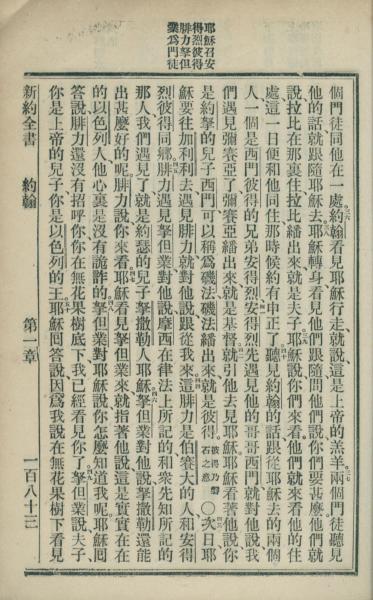 耶穌召安
得烈彼得
腓力拏但
業為門徒
個門徒同他在一處約翰看見耶穌行走就說這是上帝的羔羊兩個門徒聽見
他的話就跟隨耶穌去耶穌轉身看見他們跟隨問他們說你們要甚麼他們就
說拉比在那裏住拉比繙出來就是夫子耶穌說你們來看他們就來看他的住
處這一日便和他同住那時候約有申正了聽見約翰的話跟從耶穌去的兩個
人一個是西門彼得的兄弟安得烈安得烈先遇見他的哥哥西門就對他說我
們遇見彌賽亞了彌賽亞繙出來就是基督就引他去見耶穌耶穌看著他說你
是約拏的兒子西門可以稱為磯法磯法繙出來就是彼得彼得乃磐石之意〇次日耶
穌要往加利利去遇見腓力就對他說跟從我來這腓力是伯賽大的人和安得
烈彼得同鄉腓力遇見拏但業對他說摩西在律法上所記的和眾先知所記的
那人我們遇見了就是約瑟的兒子拏撒勒人耶穌拏但業對他說拏撒勒還能
出甚麼好的呢腓力說你來看耶穌看見拏但業來就指著他說這是實實在在
的以色列人他心裏是沒有詭詐的拏但業對耶穌說你怎麼知道我呢耶穌回
答說腓力還沒有招呼你你在無花果樹底下我已經看見你了拏但業說夫子
你是上帝的兒子你是以色列的王耶穌回答說因為我說在無花果樹下看見
新約全書 約翰 第一章 一百八十三